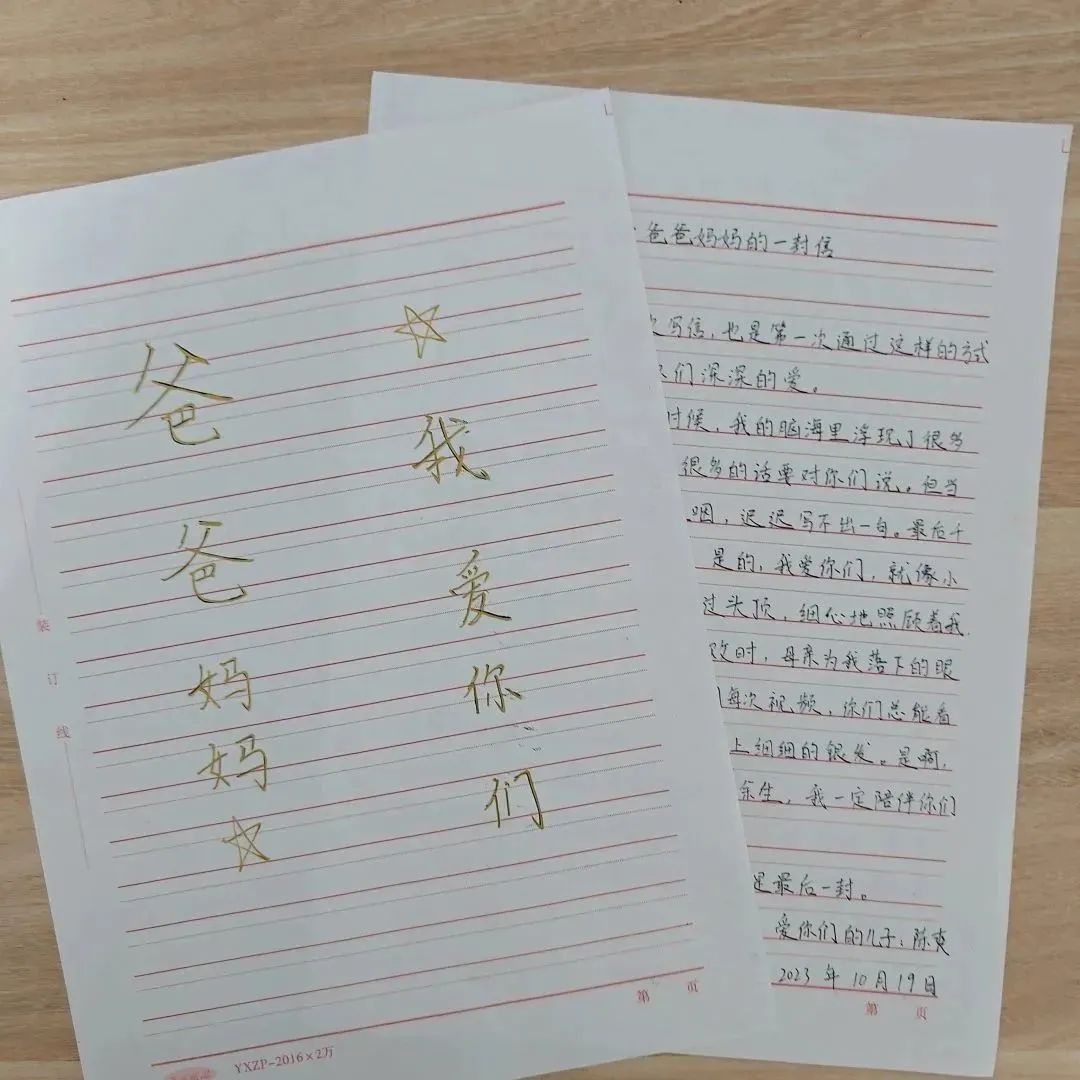 爸爸妈妈
我爱你们
装
订
线
第 页
YXZP-2016×2万
爸爸妈妈的一封信
写信,也是第一次通过这样的方式
们深深的爱。
时候,我的脑海里浮现了很多
很多的话要对你们说。但当
咽,迟迟写不出一句。最后千
是的,我爱你们,就像小
过头顶,细心地照顾着我
时,母亲为我落下的眼
每次视频,你们总能看
上细细的银发。是啊,
余生,我一定陪伴你们
是最后一封。
爱你们的儿子:陈爽
2023年10月19日
第 页